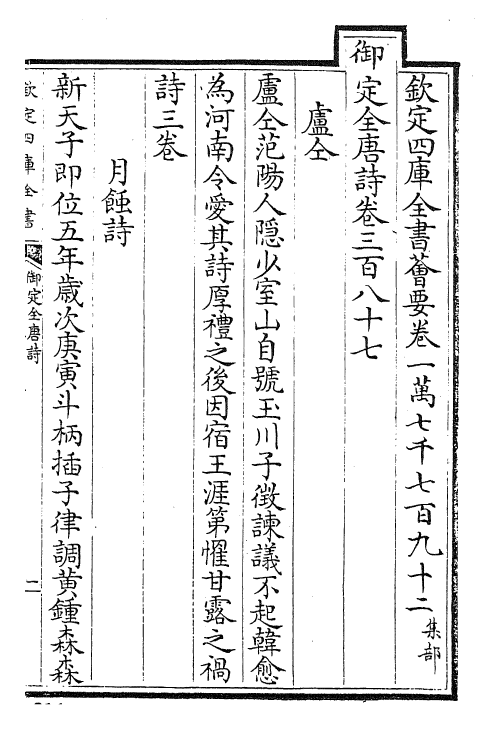 欽定四庫全書薈要卷一萬七千七百九十二 集部
御定全唐詩卷三百八十七
盧仝
盧仝范陽人隱少室山自號玉川子徴諫議不起韓愈
為河南令愛其詩厚禮之後因宿王涯第懼甘露之禍
詩三卷
月蝕詩
新天子即位五年歳次庚寅斗柄插子律調黄鍾森森
欽定四庫全書
御定全唐詩
二